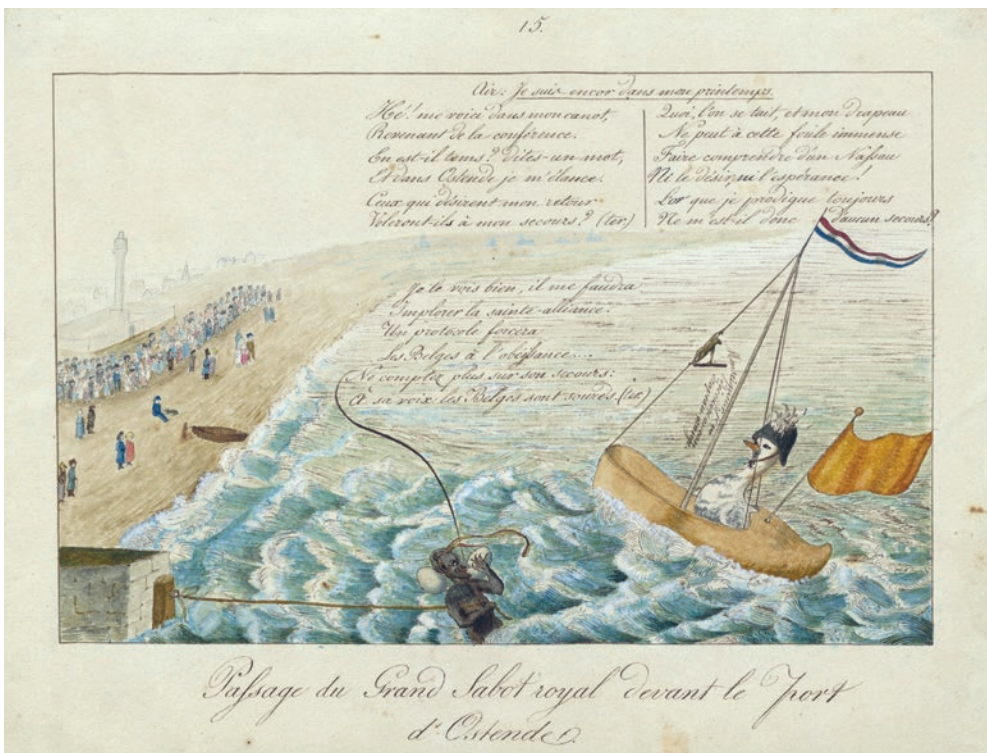 15.
Air: Je suis encor dans mon printemps.
Hé! me voici dans mon canot,
Revenant de la conférence.
En est-il tems? dites-un mot,
Et dans Ostende je m'élance.
Ceux qui désirent mon retour
Voleront-ils à mon secours? (ter)
Quoi, l'on se tait, et mon drapeau
Ne peut à cette foule immense
Faire comprendre d'un Nassau
Ni le désir, ni l'espérance!
L'or que je prodigue toujours
Ne m'est-il donc d'aucun secours?
Je le vois bien, il me faudra
Implorer la sainte-alliance.
Un protocole forcera
Les Belges à l'obéissance....
Ne comptez plus sur son secours:
À sa voix les Belges sont sourds. (ter)
Passage du Grand Sabot royal devant le Port
d'Ostende.